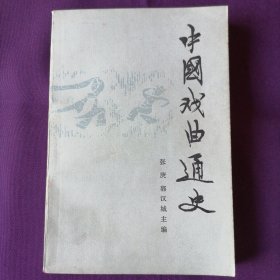 中國戏曲通史
张庚 郭汉城主编